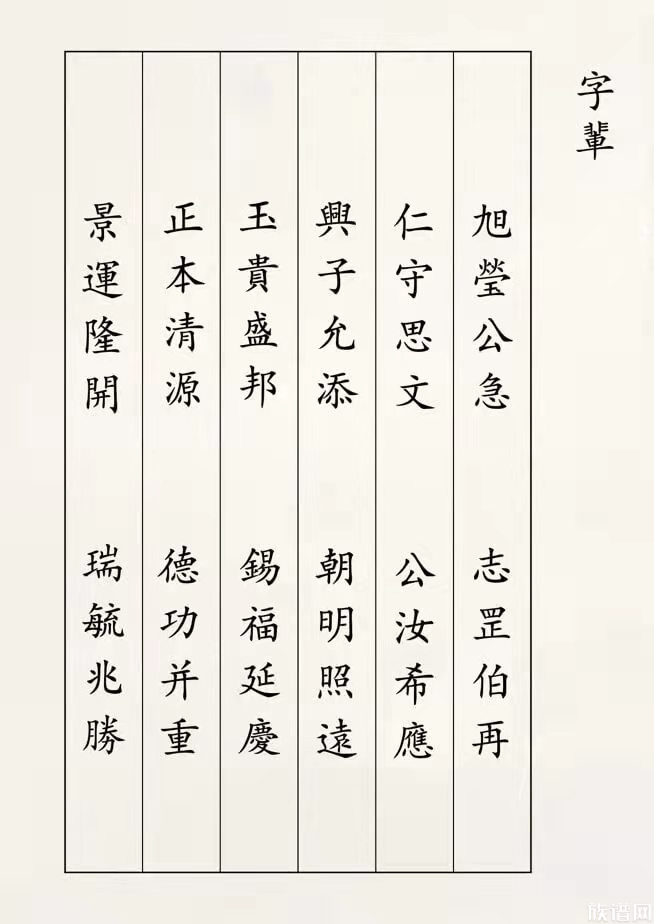 字輩
旭瑩公急 志罡伯再
仁守思文 公汝希應
興子允添 朝明照遠
玉貴盛邦 錫福延慶
正本清源 德功并重
景運隆開 瑞毓兆勝
族谱网